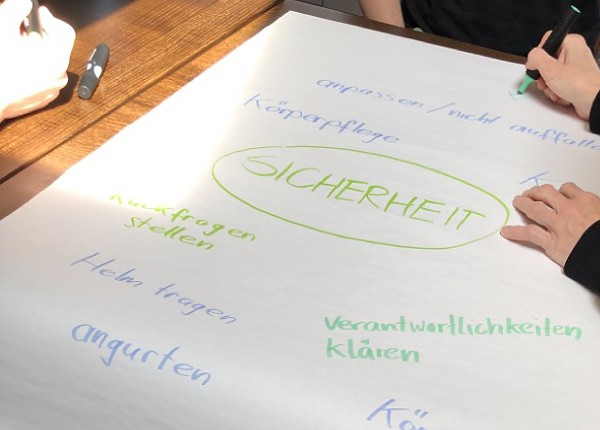 anpassen / nicht auffallen
Körperpflege
SICHERHEIT
Rückfragen
stellen
Helm tragen
angurten
verantwortlichkeiten
klären